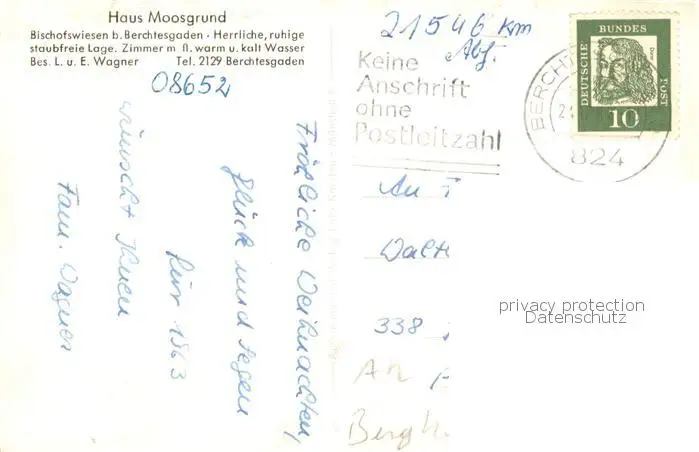 Haus Moosgrund
Bischofswiesen b. Berchtesgaden · Herrliche, ruhige
staubfreie Lage. Zimmer m fl. warm u. kalt Wasser
Bes. L. u. E. Wagner Tel. 2129 Berchtesgaden
08652
Fröhliche Weihnachten,
Glück und Segen
für 1963
wünscht Ihnen
Fam. Wagner
21546 km
Abf.
Keine
Anschrift
ohne
Postleitzahl
BERCHT
824
DEUTSCHE
BUNDES
POST
10
An
Walt
338
An
Bergh
privacy protection
Datenschutz